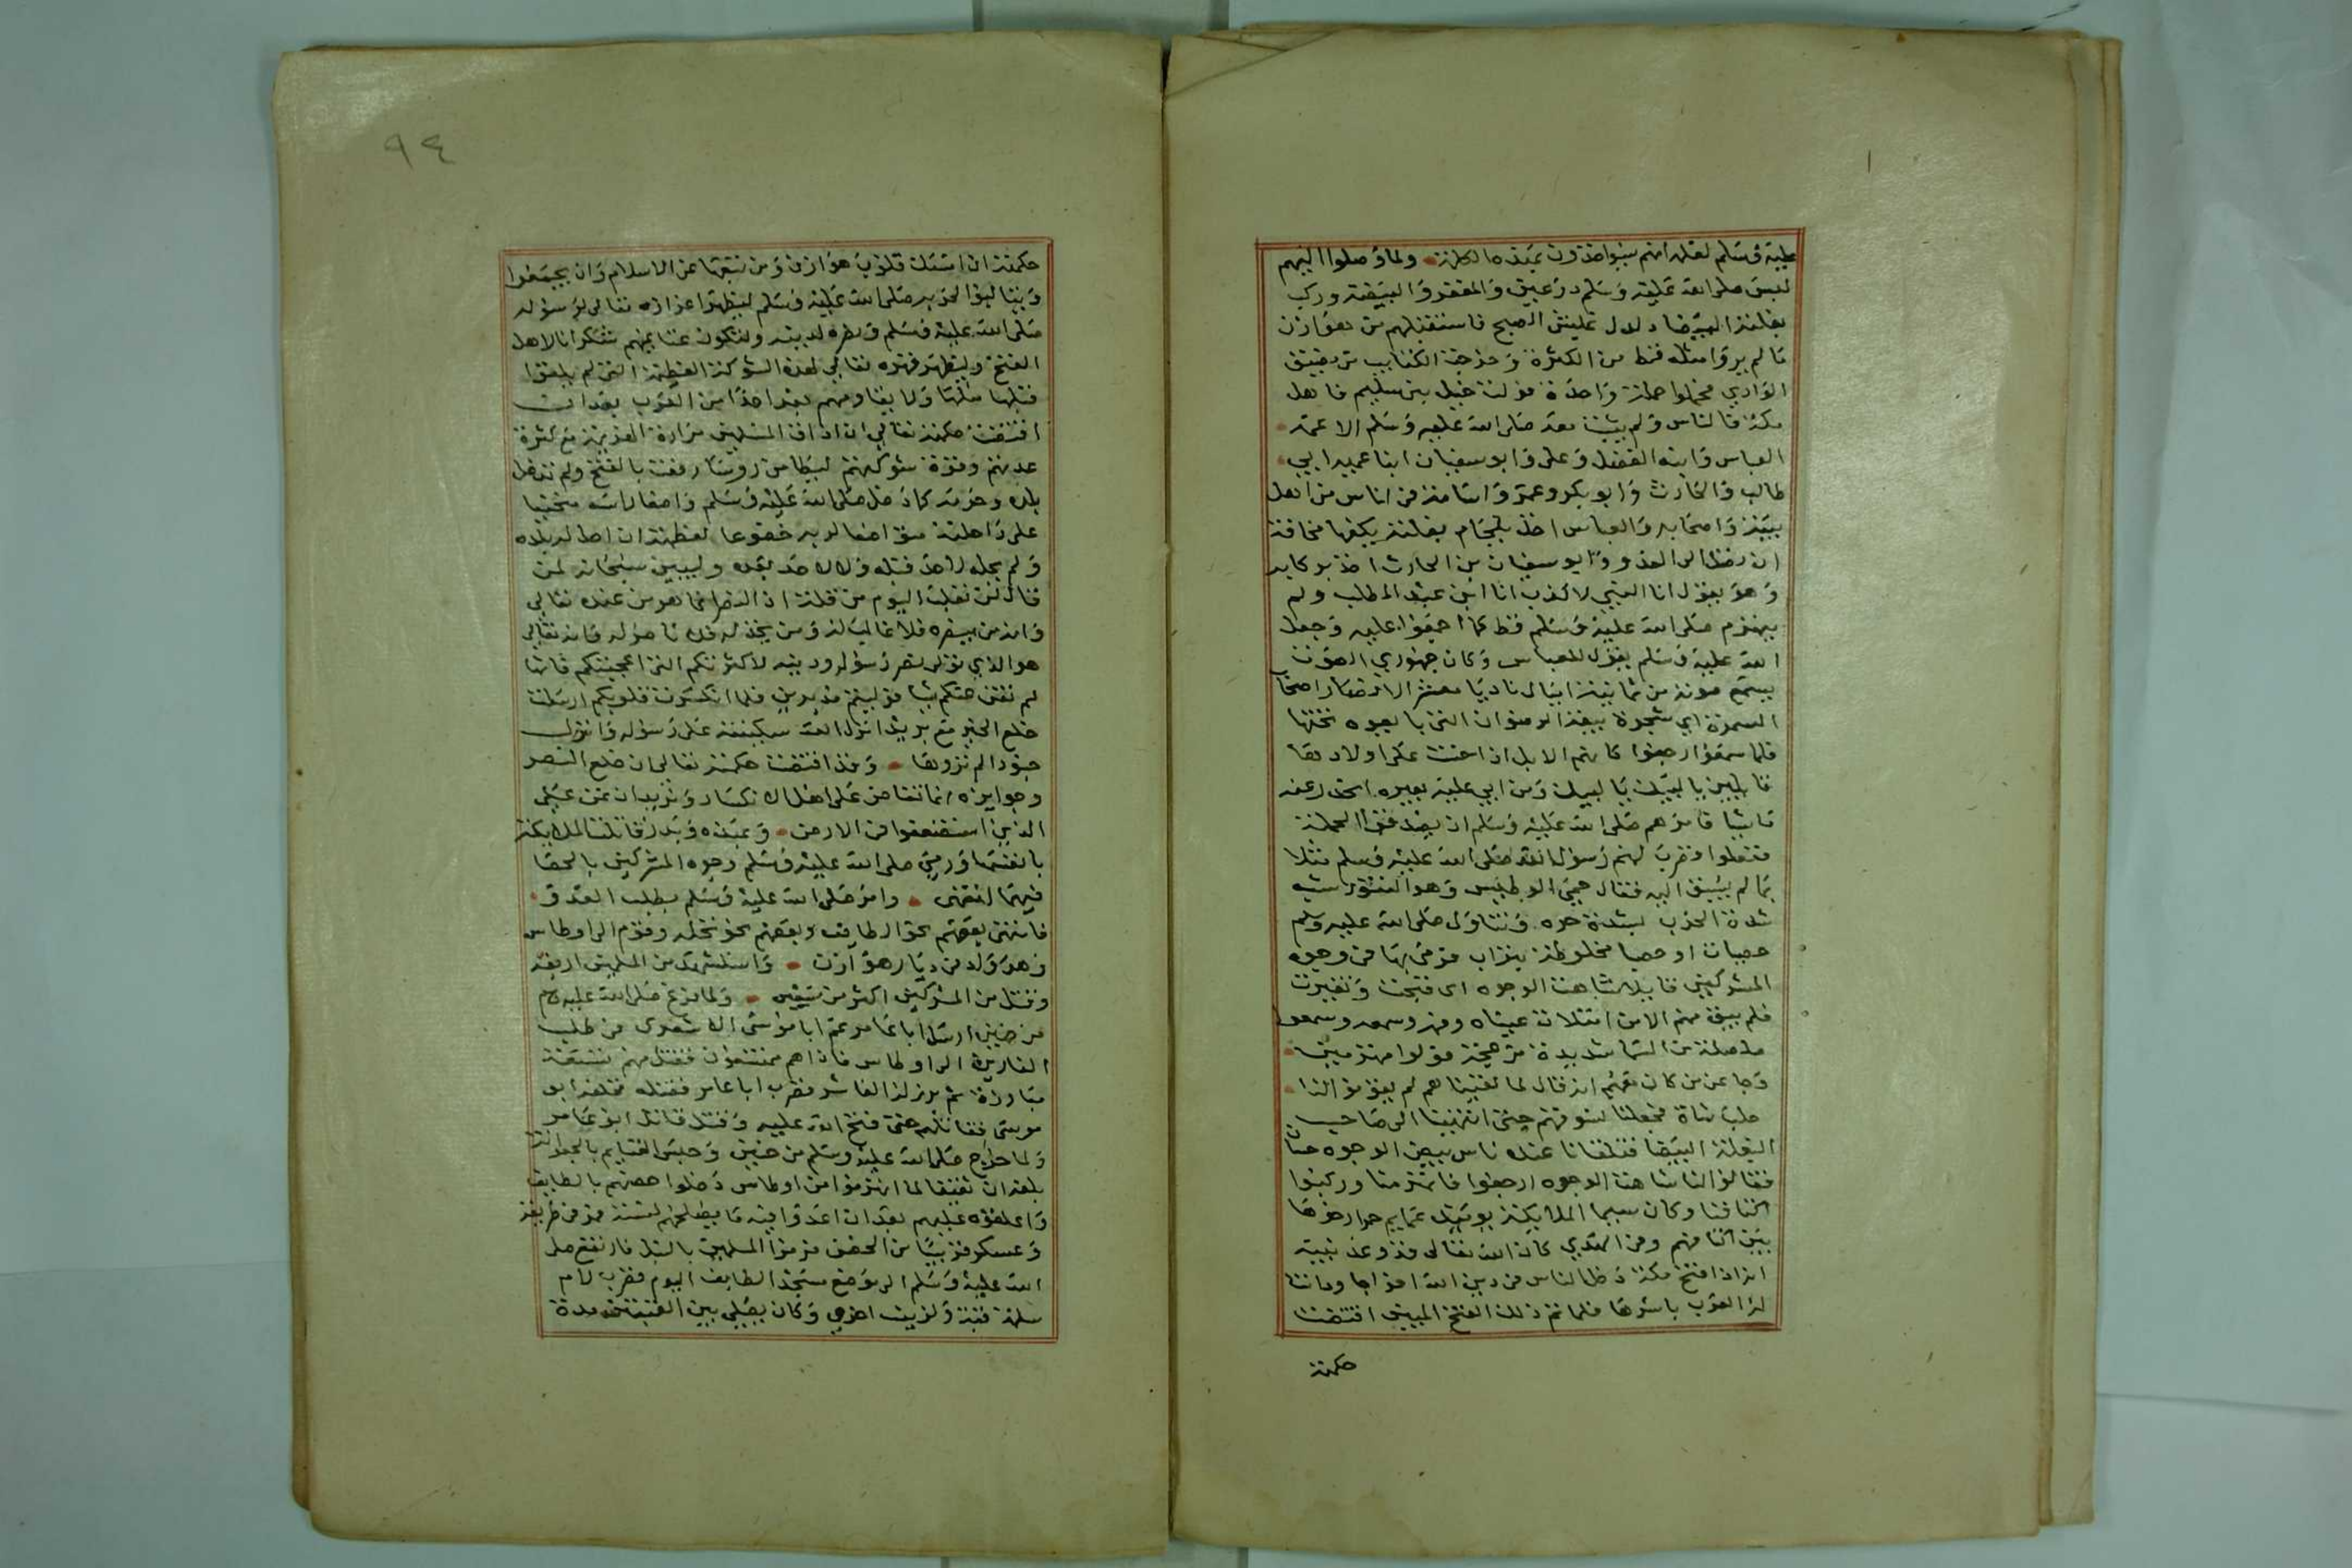 عليه وسلم لعلمه انهم سيواخذون بهذه الكلمة ولما وصلوا اليهم
لبس صلى الله عليه وسلم درعين والمغفر والبيضة وركب
بغلته البيضا دلدل فاستقبلهم من هوازن
ما لم يروا مثله قط من الكثرة وخرجت الكتايب من مضيق
الوادي فحملوا حملة واحدة فولت خيل بني سليم فاهل
مكة فالناس ولم يثبت معه صلى الله عليه وسلم الا عمه
العباس وابنه الفضل وعلى وابو سفيان ابنا عميه ابي
طالب والحارث وابو بكر وعمر واسامة في اناس من اهل
بيته واصحابه والعباس اخذ بلجام بغلته يكفها مخافة
ان تصل الى العدو وابو سفيان بن الحارث اخذ بركابه
وهو يقول انا النبي لا كذب انا ابن عبد المطلب ولم
ينهزم صلى الله عليه وسلم قط كما اجمعوا عليه وجعل
الله عليه وسلم يقول للعباس وكان جهوري الصوت
يسمع صوته من ثمانية اميال ناد يا معشر الانصار اصحاب
السمرة اي شجرة بيعة الرضوان التي بايعوه تحتها
فلما سمعوا رجعوا كانهم الابل اذا حنت على اولادها
قايلين يا لبيك يا لبيك ومن ابي عليه بعيره انحدر عنه
ماشيا فامرهم صلى الله عليه وسلم ان يصدقوا الحملة
ففعلوا فضرب لهم رسول الله صلى الله عليه وسلم مثلا
بما لم يسبق اليه فقال حمي الوطيس وهو التنور شبه
شدة الحرب بشدة حره وتناول صلى الله عليه وسلم
حصيات او حصيا مخلوطة بتراب فرمى بها في وجوه
المشركين قايلا شاهت الوجوه اي قبحت وتغيرت
فلم يبق منهم الا من امتلات عيناه وفمه وسمعه وسمعوا
صلصلة من السما شديدة فولوا منهزمين
وجا عن من كان معهم انه قال لما لقيناهم لم يقوموا لنا
حلب شاة فجعلنا نسوقهم حتى انتهينا الى صاحب
البغلة البيضا فتلقانا عنده ناس بيض الوجوه حسان
فقالوا لنا شاهت الوجوه ارجعوا فانهزمنا وركبوا
اكتافنا وكان سيما الملايكة يوميذ عمايم حمرا ارخوها
بين اكتافهم وفي الهدي كان الله تعالى قد وعد نبيه
انه اذا فتح مكة دخل الناس في دين الله افواجا ودانت
له العرب باسرها فلما تم ذلك الفتح المبين اقتضت
حكمته
٩٤
حكمته ان امسك قلوب هوازن ومن تبعها عن الاسلام وان يجتمعوا
ويتالبوا لحربه صلى الله عليه وسلم ليظهر اعزازه تعالى لرسوله
صلى الله عليه وسلم ونصره لدينه ولتكون غنايمهم شكرانا لاهل
الفتح وليظهر قهره تعالى لهذه الشوكة العظيمة التي لم يلقوا
قبلها مثلها ولا يقاومهم بعد احدا من العرب بعد ان
اقتضت حكمته تعالى ان اذاق المسلمين مرارة الهزيمة مع كثرة
عددهم وقوة شوكتهم ليطامن روسا رفعت بالفتح ولم تدخل
بلده وحرمه كما دخل صلى الله عليه وسلم واضعا راسه منحنيا
على راحلته متواضعا لربه خضوعا لعظمته ان احل له بلده
ولم يحله لاحد قبله ولا لاحد بعده وليبين سبحانه لمن
قال لن نغلب اليوم من قلة ان النصر انما هو من عنده تعالى
وانه من ينصره فلا غالب له ومن يخذله فلا ناصر له فانه تعالى
هو الذي تولى نصر رسوله ودينه لا كثرتكم التي اعجبتكم فانها
لم تغن عنكم شيا فوليتم مدبرين فلما انكسرت قلوبكم ارسلت
خلع الجبر مع بريد انزل الله سكينته على رسوله وانزل
جنودا لم تروها وقد اقتضت حكمته تعالى ان خلع النصر
وجوايزه انما تفاض على اهل الانكسار ونريد ان نمن على
الذين استضعفوا في الارض وبهذه وبدر قاتلت الملايكة
بانفسها ورمى صلى الله عليه وسلم وجوه المشركين بالحصا
فيهما وامر صلى الله عليه وسلم بطلب العدو
فانتهى بعضهم نحو الطايف وبعضهم نحو نخلة وقوم الى اوطاس
وهو واد من ديار هوازن واستشهد من المسلمين اربعة
وقتل من المشركين اكثر من سبعين ولما فرغ صلى الله عليه وسلم
من حنين ارسل ابا عامر عم ابا موسى الاشعري في طلب
الفارين الى اوطاس فاذا هم ممتنعون فقتل منهم تسعة
مبارزة ثم برز له العاشر فضرب ابا عامر فقتله فخلفه ابو
موسى فقاتلهم حتى فتح الله عليه وقتل قاتل ابو عامر
ولما خرج صلى الله عليه وسلم من حنين وحبس الغنايم بالجعرانة
بلغه ان ثقيفا لما انهزموا من اوطاس دخلوا حصنهم بالطايف
واغلقوه عليهم بعد ان اعدوا فيه ما يصلحهم لسنة فمر في طريقه
وعسكر قريبا من الحصن فرموا المسلمين بالنبل فارتفع صلى
الله عليه وسلم الى موضع مسجد الطايف اليوم فضرب لام
سلمة قبة ولزينب اخرى وكان يصلي بين القبتين مدة